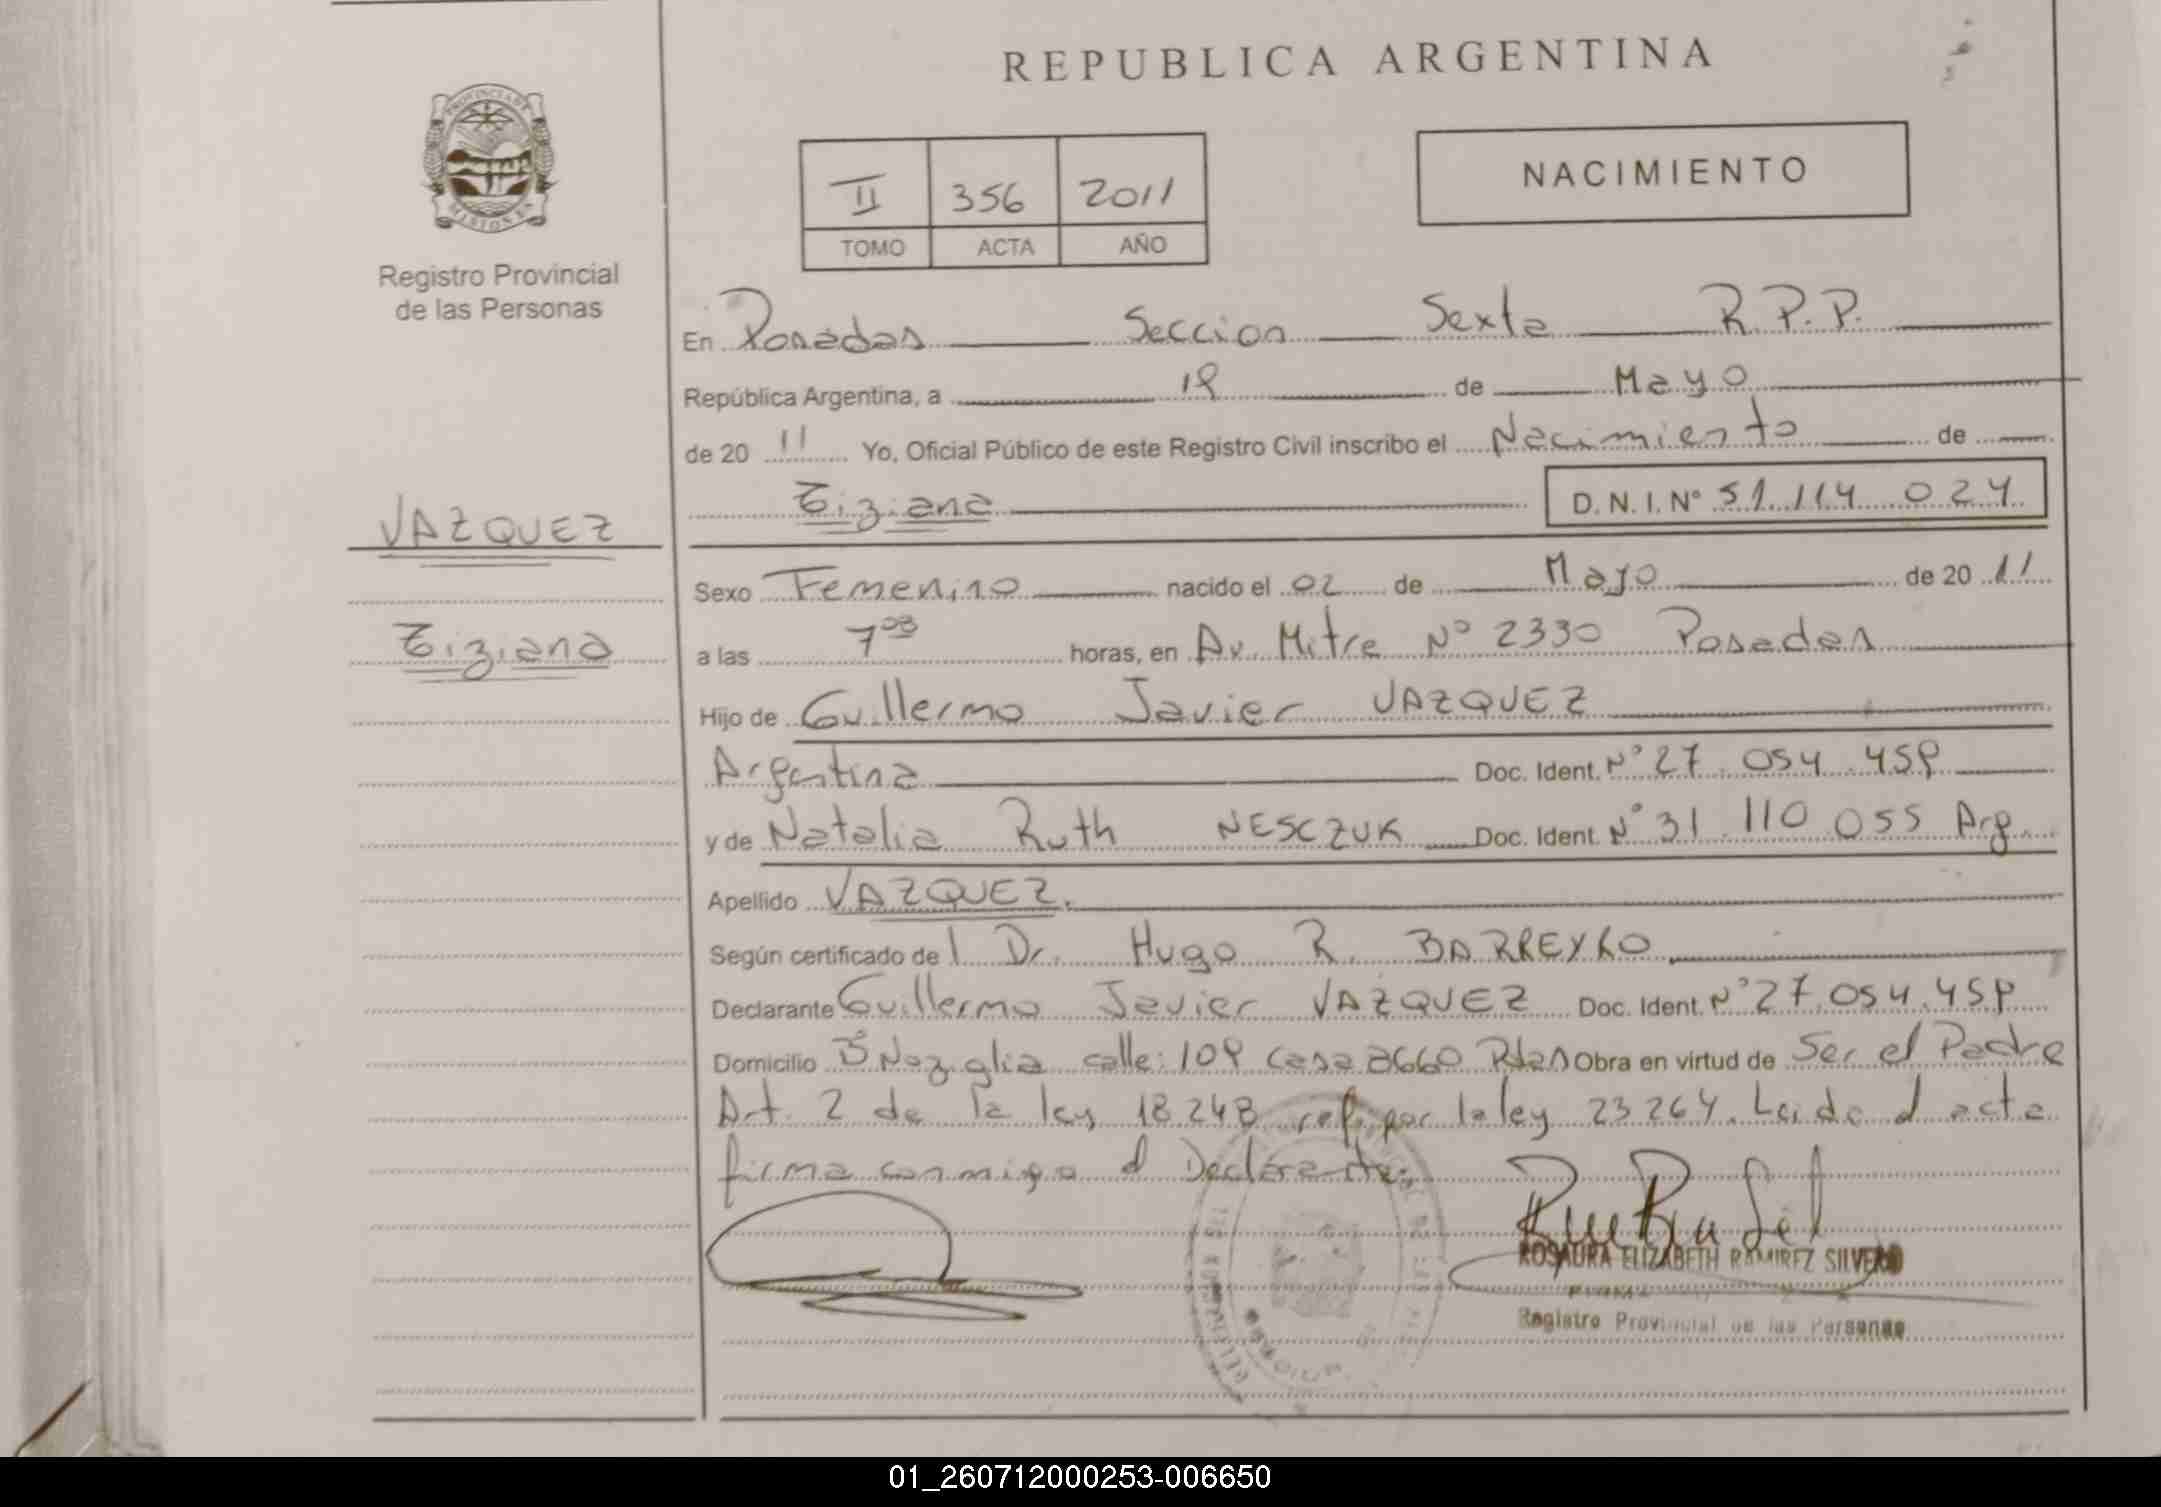 REPUBLICA ARGENTINA
PROVINCIA DE
MISIONES
Registro Provincial
de las Personas
II 356 2011
TOMO ACTA AÑO
NACIMIENTO
En Posadas Seccion Sexta R.P.P.
República Argentina, a 19 de Mayo
de 20 11 Yo, Oficial Público de este Registro Civil inscribo el Nacimiento de
Tiziana D. N. I. Nº 51.114.024
VAZQUEZ
Tiziana
Sexo Femenino nacido el 02 de Mayo de 20 11
a las 7 horas, en Av. Mitre Nº 2330 Posadas
Hijo de Guillermo Javier VAZQUEZ
Argentina Doc. Ident. Nº 27.054.459
y de Natalia Ruth NESCZUK Doc. Ident. Nº 31.110.055 Arg.
Apellido VAZQUEZ.
Según certificado del Dr. Hugo R. BARREYRO
Declarante Guillermo Javier VAZQUEZ Doc. Ident. Nº 27.054.459
Domicilio Bº calle: 109 casa Pdas Obra en virtud de Ser el Padre
Art. 2 de la ley 18.248 ref. por la ley 23.264. Leida el acta
firma conmigo el Declarante.
ROSAURA ELIZABETH RAMIREZ SILVERO
Registro Provincial de las Personas
01_260712000253-006650